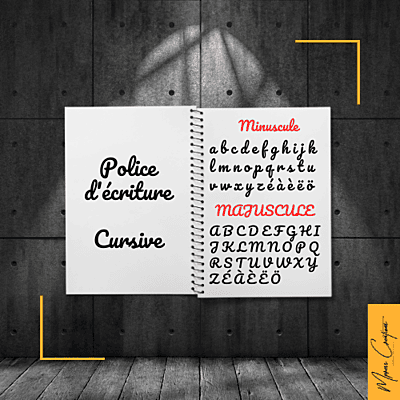 Police
d'écriture
Cursive
Minuscule
abcdefghijk
lmnopqrstu
vwxyzéàèëö
MAJUSCULE
ABCDEFGHI
JKLMNOPQ
RSTUVWXY
ZÉÀÈËÖ